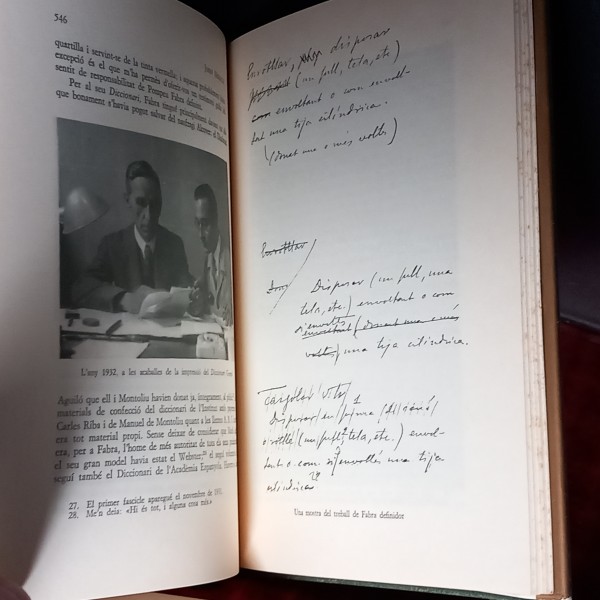 546
quartilla i servint-se de la tinta vermella; i aquesta
excepció és el que m'ha permès d'oferir-vos un
sentit de responsabilitat de Pompeu Fabra
Per al seu Diccionari, Fabra tingué principalment
que bonament s'havia pogut salvar del naufragi Alcover: el
L'any 1932, a les acaballes de la impressió del Diccionari
Aguiló que ell i Montoliu havien donat ja, íntegrament, a
materials de confecció del diccionari de l'Institut amb
Carles Riba i de Manuel de Montoliu quant a les lletres
era tot material propi. Sense deixar de considerar
ta, per a Fabra, l'home de més autoritat de tots
el seu gran model havia estat el Webster;
seguí també el Diccionari de l'Acadèmia Espanyola.
27. El primer fascicle aparegué el novembre de
28. Me'n deia: «Hi és tot, i alguna cosa més.»
Enrotllar, disposar
(un full, tela, etc)
com envoltant o com envol-
tant una tija cilíndrica.
(donat una o més voltes)
Enrotllar
Disposar (un full, una
tela, etc.) envoltant o com
envoltant (donant una o més
voltes) una tija cilíndrica.
Disposar
(un full, tela, etc.) envol-
tant o com una tija
cilíndrica.
Una mostra del treball de Fabra definidor